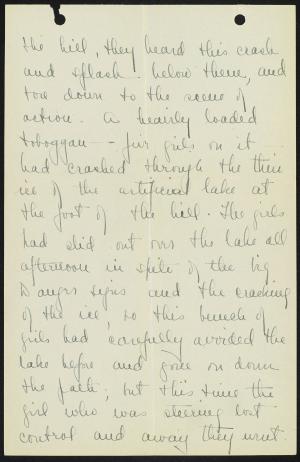 the hill, they heard this crash
and splash. below them, and
tore down to the scene of
action. A heavily loaded
toboggan -- five girls on it
had crashed through the thin
ice of the artificial lake at
the foot of the hill. The girls
had slid out over the lake all
afternoon in spite of the big
Danger signs and the cracking
of the ice, so this bunch of
girls had carefully avoided the
lake before and gone on down
the path; but this time the
girl who was steering lost
control and away they went.